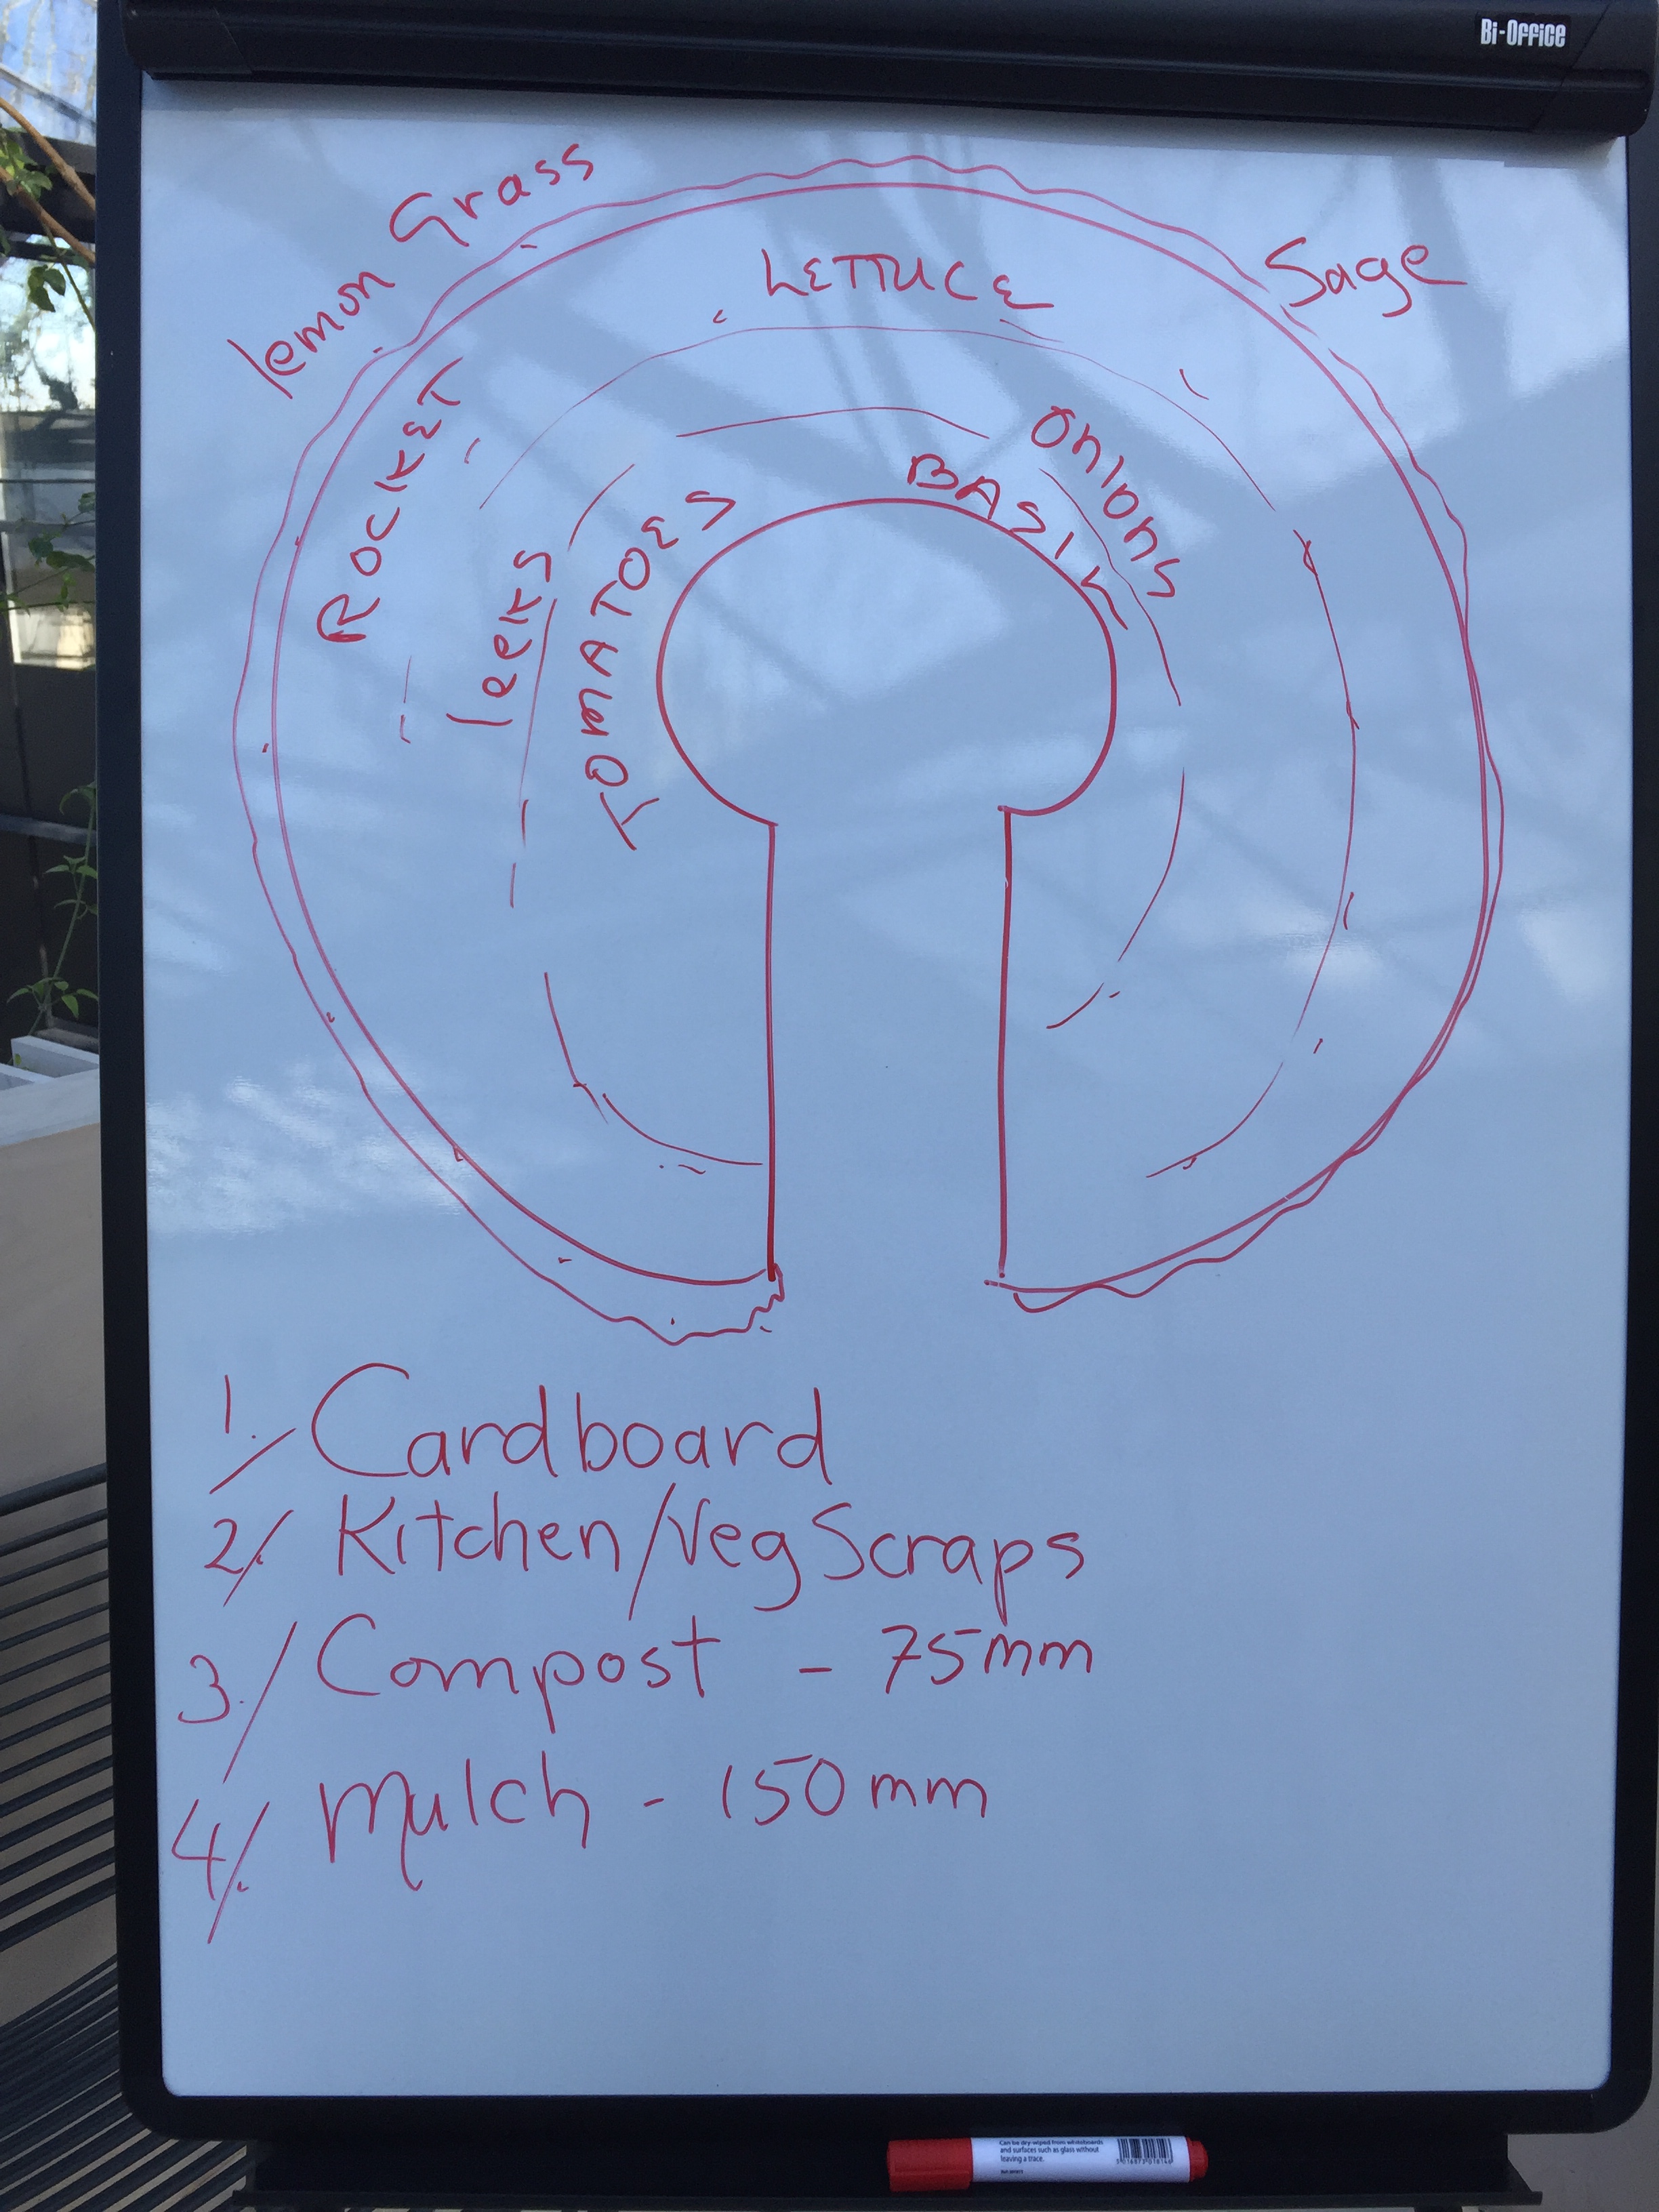 Bi-Office
lemon Grass
Sage
LETTUCE
ROCKET
ONIONS
BASIL
leeks
TOMATOES
1. Cardboard
2. Kitchen/Veg Scraps
3. Compost - 75mm
4. Mulch - 150mm
Can be dry-wiped from whiteboards
and surfaces such as glass without
leaving a trace.